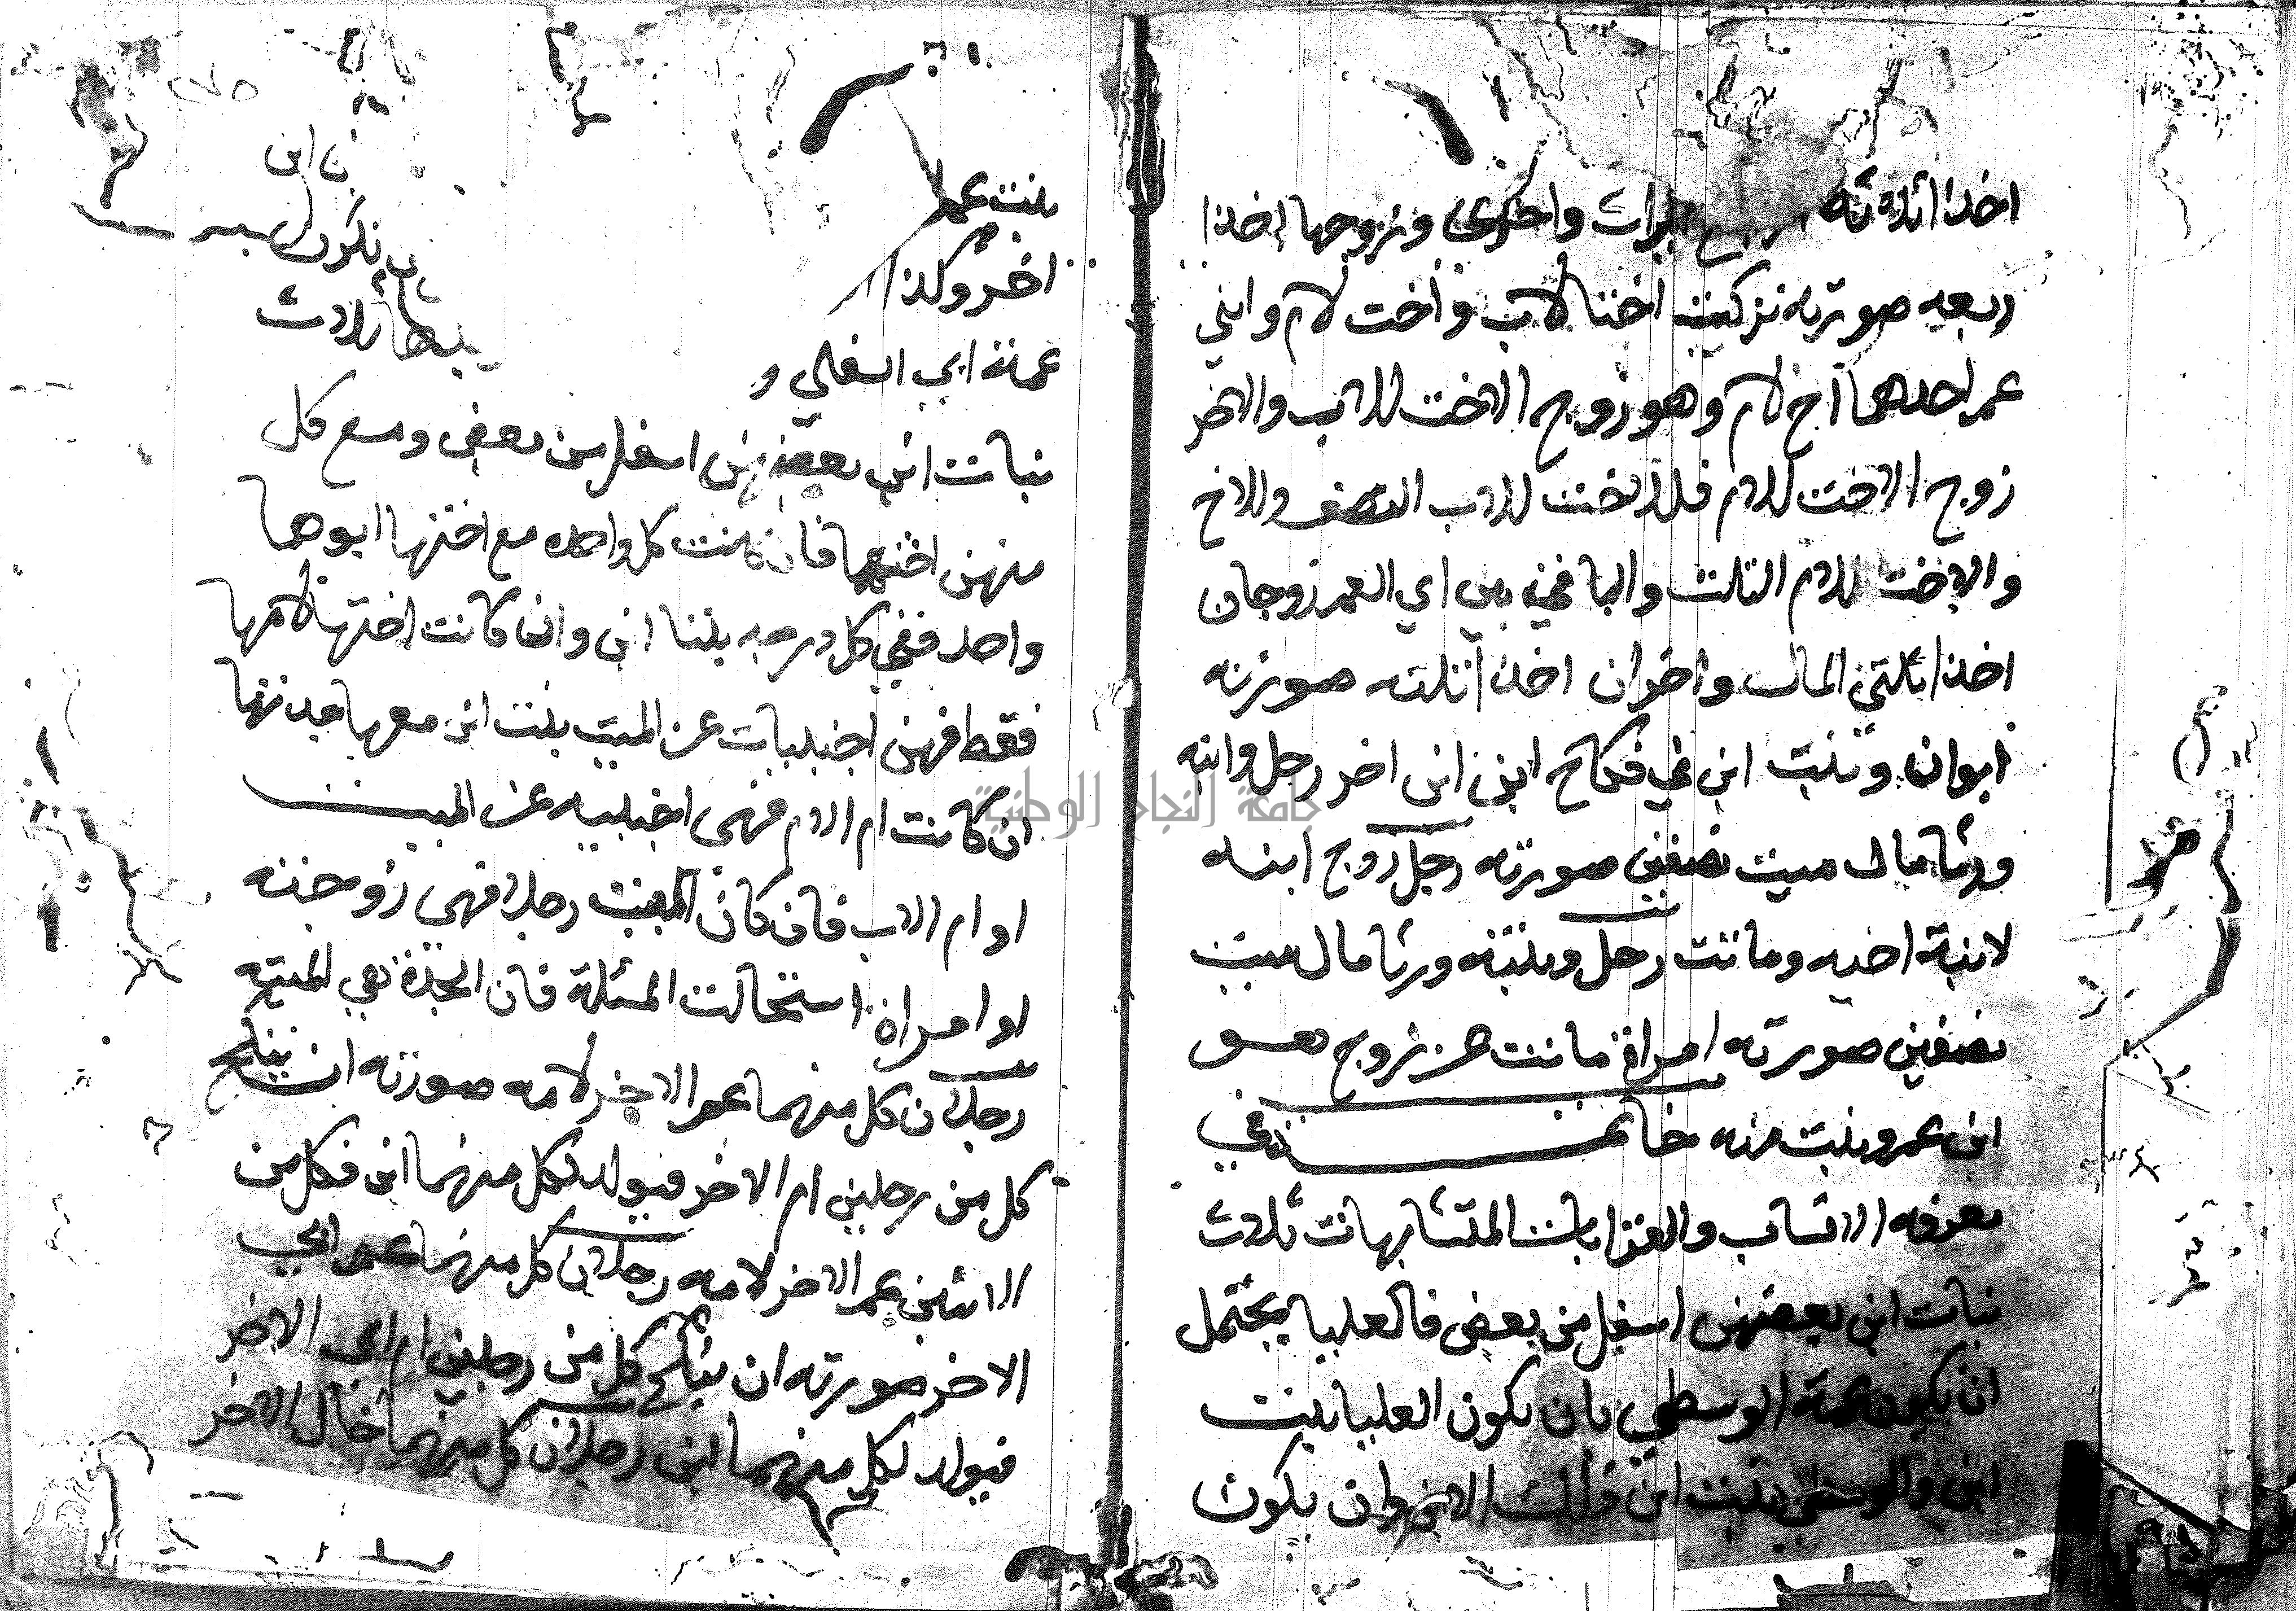 اخذا ثلاثه ارباع الميراث واخرى وزوجها اخذا
ربعه صورته تركت اختا لاب واخت لام وابني
عم احدهما اخ لام وهو زوج الاخت للاب والاخر
زوج الاخت للام فللاخت للاب النصف وللاخ
والاخت للام الثلث والباقي بين ابني العم زوجان
اخذا ثلثي المال واخران اخذا ثلثه صورته
ابوان وبنت ابن في نكاح ابن ابن اخر رجل وابنته
ورثا مال ميت نصفين صورته رجل زوج ابنه
لابنة اخيه وماتت رجل وبنته ورثا مال ميت
نصفين صورته امراة ماتت عن زوج هو
ابن عم وبنت منه خاتمة في
معرفه الانساب والقرابات المتشابهات ثلاث
بنات ابن بعضهن اسفل من بعض فالعليا يحتمل
ان تكون عمة الوسطى بان تكون العليا بنت
ابن والوسطى بنت ابن ذلك الابن وان يكون
بنت عم
اخر وكذا
عمة ابي السفلى و
بنات ابن بعضهن اسفل من بعض ومع كل
منهن اختها فان كانت كل واحده مع اختها ابوهما
واحد ففي كل درجه بنتا ابن وان كانت اختها لامها
فقط فهن اجنبيات عن الميت بنت ابن معها جدتها
ان كانت ام الام فهي اجنبيه عن الميت
او ام الاب فان كان الميت رجلا فهي زوجته
او امراة استحالت المسئلة فان الجدة هي الميته
رجلان كل منهما عم الاخر لامه صورته ان ينكح
كل من رجلين ام الاخر فيولد لكل منهما ابن فكل من
الابنين عم الاخر لامه رجلان كل منهما عم ابي
الاخر صورته ان ينكح كل من رجلين ام ابي الاخر
فيولد لكل منهما ابن رجلان كل منهما خال الاخر
ابن
تكون
ثلاث
جامعة النجاح الوطنية